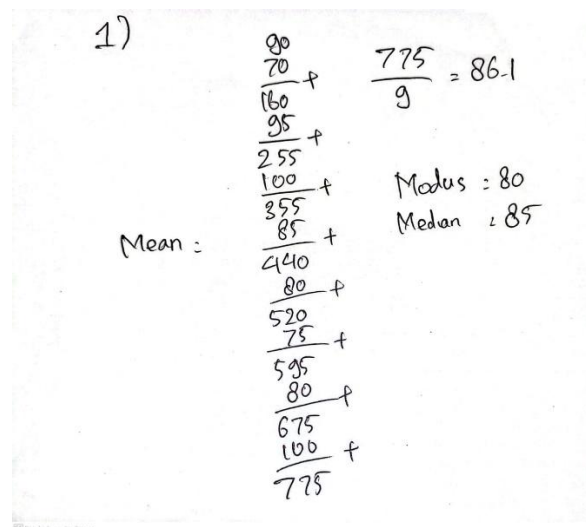 1)
90
70 +
160
95 +
255
100 +
355
85 +
440
80 +
520
75 +
595
80 +
675
100 +
775
Mean :
775
9
= 86.1
Modus : 80
Median : 85